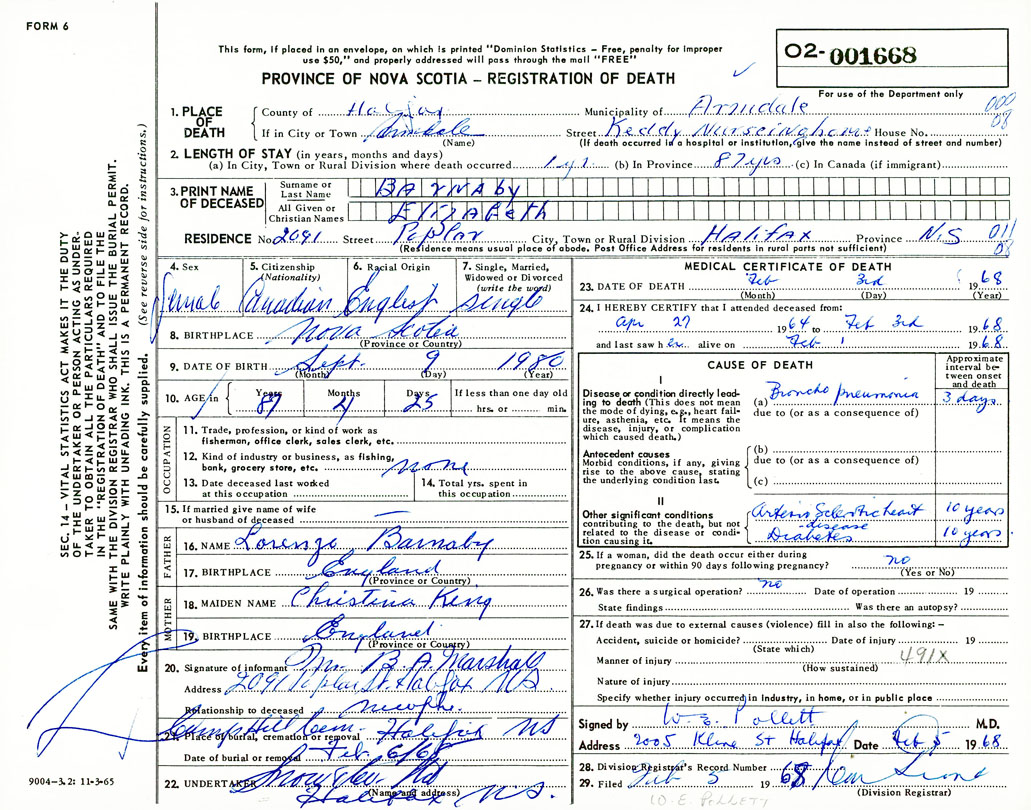 FORM 6
This form, if placed in an envelope, on which is printed "Dominion Statistics – Free, penalty for improper
use $50," and properly addressed will pass through the mail "FREE"
O2-001668
PROVINCE OF NOVA SCOTIA – REGISTRATION OF DEATH
For use of the Department only
1. PLACE OF DEATH County of Halifax Municipality of Armdale 000
If in City or Town Armdale Street Keddy Nurseinghome House No. 08
(Name) (If death occurred in a hospital or institution, give the name instead of street and number)
2. LENGTH OF STAY (in years, months and days)
(a) In City, Town or Rural Division where death occurred 1 yr (b) In Province 87 yrs (c) In Canada (if immigrant)
3. PRINT NAME OF DECEASED Surname or Last Name BArnAby
All Given or Christian Names ElizABeth
RESIDENCE No. 2091 Street Poplar City, Town or Rural Division HALIFAX Province N.S 011
(Residence means usual place of abode. Post Office Address for residents in rural parts not sufficient) 08
4. Sex 5. Citizenship (Nationality) 6. Racial Origin 7. Single, Married, Widowed or Divorced (write the word)
female Canadian English single
8. BIRTHPLACE Nova Scotia
(Province or Country)
9. DATE OF BIRTH Sept. 9 1980
(Month) (Day) (Year)
10. AGE in Years Months Days If less than one day old
87 4 25 hrs. or min.
OCCUPATION
11. Trade, profession, or kind of work as
fisherman, office clerk, sales clerk, etc.
12. Kind of industry or business, as fishing,
bank, grocery store, etc. none
13. Date deceased last worked
at this occupation
14. Total yrs. spent in
this occupation
15. If married give name of wife
or husband of deceased —
FATHER
16. NAME Lorenzo Barnaby
17. BIRTHPLACE England
(Province or Country)
MOTHER
18. MAIDEN NAME Christina King
19. BIRTHPLACE England
(Province or Country)
20. Signature of informant Mrs. B. A. Marshall
Address 2091 Poplar St. Halifax NS.
Relationship to deceased
21. Place of burial, cremation or removal Camp Hill Cem. Halifax NS
Date of burial or removal Feb. 6/68
22. UNDERTAKER Snow &
(Name and address)
Halifax NS.
MEDICAL CERTIFICATE OF DEATH
23. DATE OF DEATH Feb 3rd 1968
(Month) (Day) (Year)
24. I HEREBY CERTIFY that I attended deceased from:
Apr 27 1964 to Feb 3rd 1968
and last saw her alive on Feb 1 1968
CAUSE OF DEATH
Approximate interval between onset and death
I
Disease or condition directly leading to death (This does not mean the mode of dying, e.g., heart failure, asthenia, etc. It means the disease, injury, or complication which caused death.)
(a) Broncho pneumonia 3 days
due to (or as a consequence of)
Antecedent causes
Morbid conditions, if any, giving rise to the above cause, stating the underlying condition last.
(b)
due to (or as a consequence of)
(c)
II
Other significant conditions
contributing to the death, but not related to the disease or condition causing it.
Arterio Sclerotic heart disease 10 years
Diabetes 10 years
25. If a woman, did the death occur either during
pregnancy or within 90 days following pregnancy? no
(Yes or No)
26. Was there a surgical operation? no Date of operation 19
State findings Was there an autopsy?
27. If death was due to external causes (violence) fill in also the following: –
Accident, suicide or homicide? Date of injury 19
(State which)
Manner of injury 491X
(How sustained)
Nature of injury
Specify whether injury occurred in Industry, in home, or in public place
Signed by W. E. Pollett M.D.
Address 2005 Kline St Halifax Date Feb 5 1968
28. Division Registrar's Record Number
29. Filed Feb 5 1968
(Division Registrar)
W. E. POLLETT
SEC. 14 – VITAL STATISTICS ACT MAKES IT THE DUTY
OF THE UNDERTAKER OR PERSON ACTING AS UNDER-
TAKER TO OBTAIN ALL THE PARTICULARS REQUIRED
IN THE "REGISTRATION OF DEATH" AND TO FILE THE
SAME WITH THE DIVISION REGISTRAR WHO SHALL ISSUE THE BURIAL PERMIT.
WRITE PLAINLY WITH UNFADING INK. THIS IS A PERMANENT RECORD.
Every item of information should be carefully supplied. (See reverse side for instructions.)
9004-3.2: 11-3-65